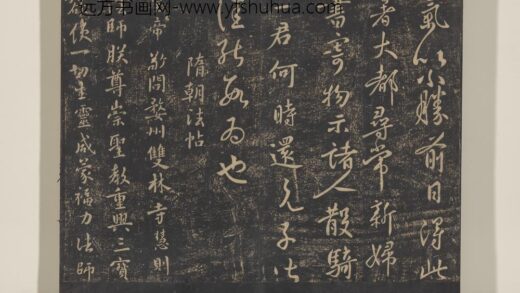 远方书画网-www.yfshuhua.com
氣以小勝前日得此
者大都尋常新婦
寄物示諸人散騎
君何時還見子
也
隋朝法帖
帝敬問婺州雙林寺慧則
師朕尊崇聖教重興三寶
使一切生靈咸蒙福力法師